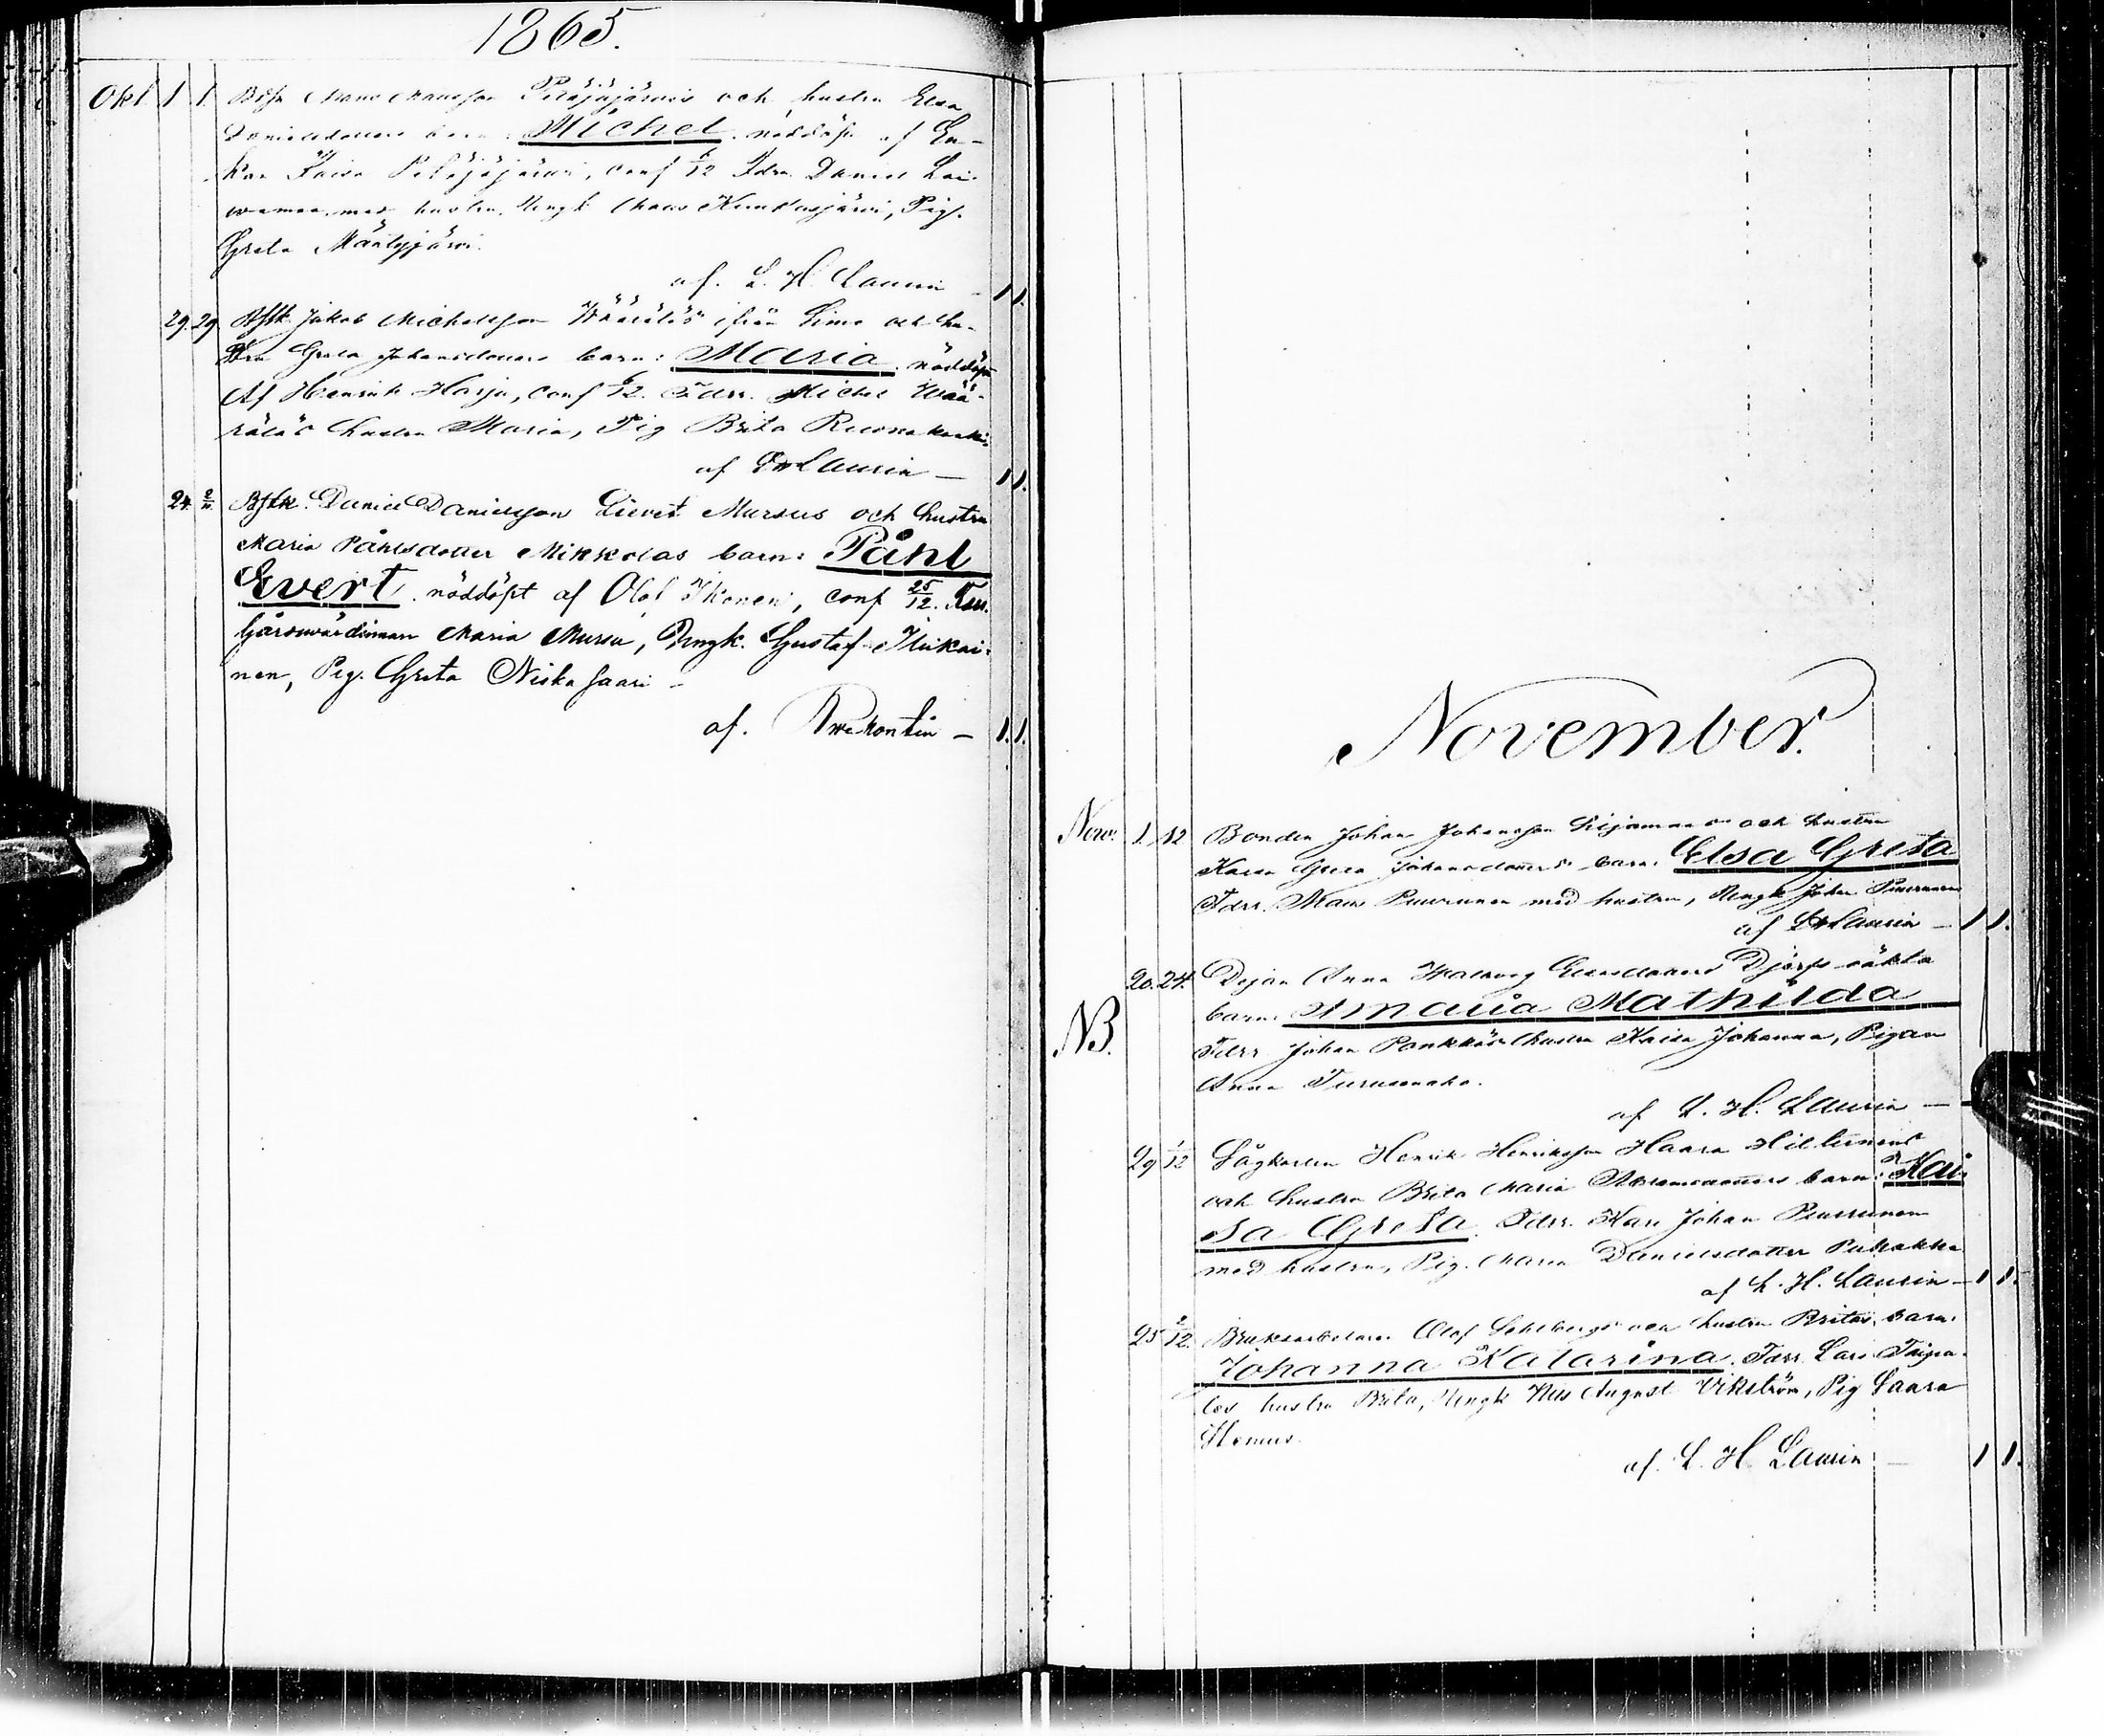 1865.
Okt 1 1. Bfsn Mans Mansson Petäjäjärvis och hustru Elsa
Danielsdotters barn: Michel. nöddöpt af En-
kan Kaisa Petäjäjärvi, conf 6/12 Fdrr. Daniel Lai-
wamaa med hustru, Dngk Mans Kuukasjärvi, Pig.
Greta Mäntyjärvi.
af. L. H. Laurin - 1 1.
29. 29. Bftk. Jakob Michelsson Wääräläs ifrån Simo och hu-
stru Greta Johansdotters barn: Maria. nöddöpt
Af Henrik Harju, conf 6/12. Fdrr. Michel Wää-
räläs hustru Maria, Pig Brita
af LHLaurin — 1 1.
24. 2/11. Bftk. Daniel Danielsson Mursus och hustru
Maria Påhlsdotter Mikkolas barn: Påhl
Evert. nöddöpt af Olof Ikonen, conf 25/12. Fdrr.
Gårdwärdinnan Maria Mursu, Dngk. Gustaf Ilikai-
nen, Pig. Greta Niskasaari -
af. — 1. 1.
November.
Nov: 1. 12 Bonden Johan Johansson och hustru
Kaisa Greta Johansdotters barn: Elsa Greta
Fdrr. Mans Puurunen med hustru, Dngk Johan Puurunen
af LHLaurin — 1 1.
20. 24. Pigan Anna Walborg oäkta
barn: Amalia Mathilda
NB. Fdrr Johan hustru Kaisa Johanna, Pigan
Anna
af L. H. Laurin —
29 1/12 Sågkarlen Henrik Henriksson Haara Hiltunens
och hustru Brita Maria Abramsdotters barn: Kai-
sa Greta. Fdrr. Karl Johan Puurunen
med hustru, Pig. Maria Danielsdotter Puhakka
af L. H. Laurin — 1 1.
25 2/12. Bruksarbetaren Olof och hustru Britas barn:
Johanna Katarina. Fdrr. Lars
hustru Brita, Dngk Nils August Vikström, Pig Saara
Homus.
af. L. H. Laurin — 1 1.